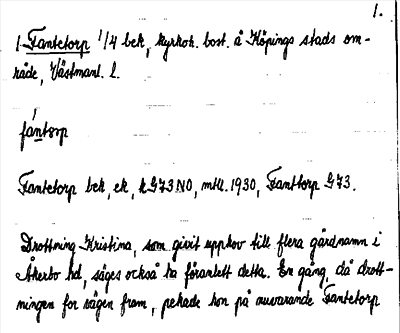 1.
1 Fantetorp 1/4 bek, kyrkoh. bost. å Köpings stads om-
råde, Västmanl. l.
fàntorp
Fantetorp bek, ek, k G73 NO, mtll. 1930, Fanttorp G73.
Drottning Kristina, som givit upphov till flera gårdnamn i
Åkerbo hd, säges också ha föranlett detta. En gång, då drott-
ningen for vägen fram, pekade hon på nuvarande Fantetorp